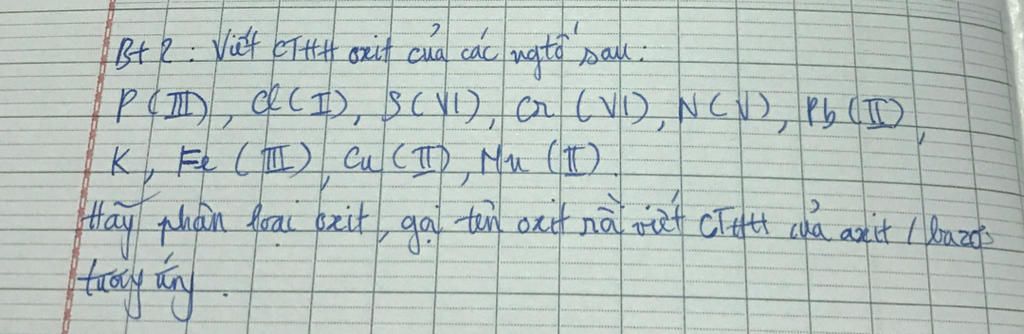 Bt 2: Viết CTHH oxit của các ngtố sau:
P (III), Cl (I), S (VI), Cr (VI), N (V), Pb (II),
K, Fe (III), Cu (II), Mn (II).
Hãy phân loại oxit, gọi tên oxit và viết CTHH của axit / bazơ
tương ứng.